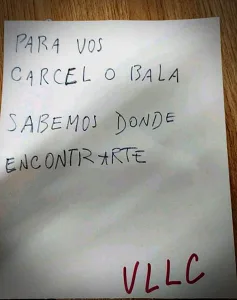 PARA VOS
CARCEL O BALA
SABEMOS DONDE
ENCONTRARTE
VLLC